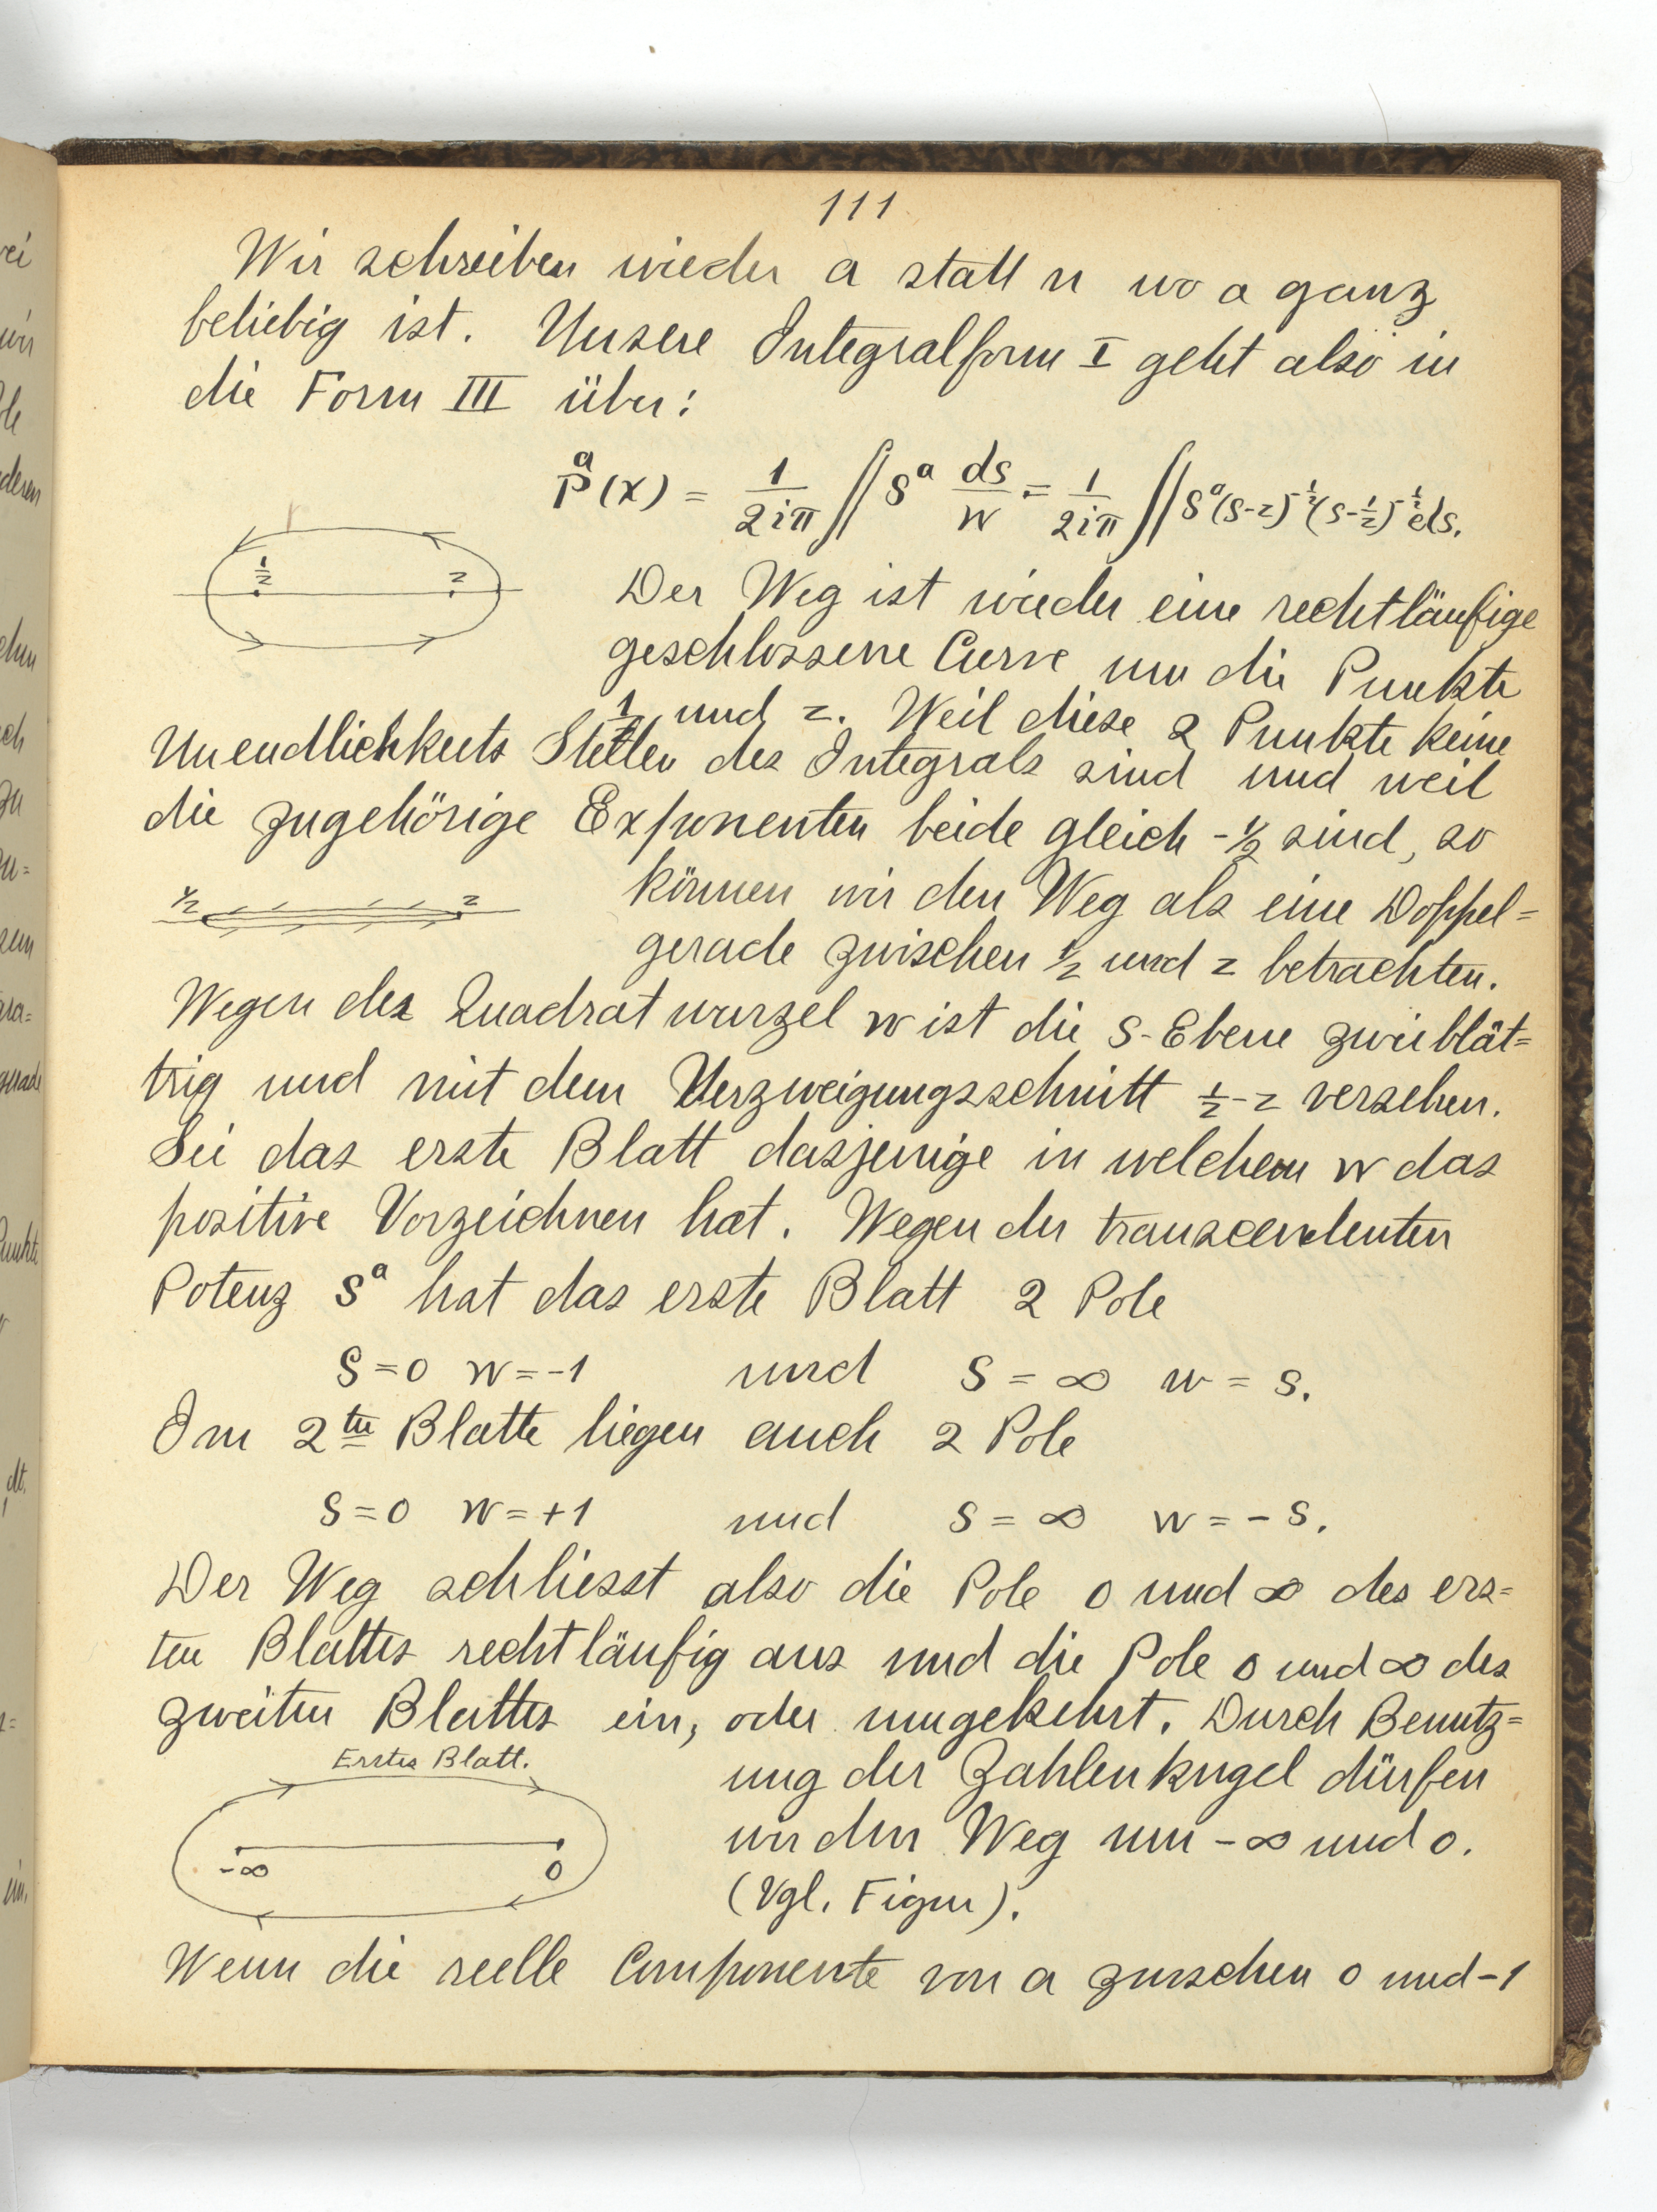 111
Wir schreiben wieder a statt n wo a ganz
beliebig ist. Unsere Integralform I geht also in
die Form III über:
P^a(x) = 1/2iπ ∫∫ s^a ds/w = 1/2iπ ∫∫ s^a (s-z)^-1/2 (s-1/z)^-1/2 ds.
1/z z
Der Weg ist wieder eine rechtläufige
geschlossene Curve um die Punkte
1/z und z. Weil diese 2 Punkte keine
Unendlichkeits Stellen des Integrals sind und weil
die zugehörige Exponenten beide gleich -1/2 sind, so
1/z z
können wir den Weg als eine Doppel=
gerade zwischen 1/z und z betrachten.
Wegen der Quadratwurzel w ist die s-Ebene zweiblät=
trig und mit dem Verzweigungsschnitt 1/z-z versehen.
Sei das erste Blatt dasjenige in welchem w das
positive Vorzeichnen hat. Wegen der transcendenten
Potenz s^a hat das erste Blatt 2 Pole
s=0 w=-1 und s=∞ w=s.
Im 2ten Blatte liegen auch 2 Pole
s=0 w=+1 und s=∞ w=-s.
Der Weg schliesst also die Pole 0 und ∞ des ers=
ten Blattes rechtläufig aus und die Pole 0 und ∞ des
zweiten Blattes ein, oder umgekehrt. Durch Benutz=
Erstes Blatt.
-∞ 0
ung der Zahlenkugel dürfen
wir den Weg um -∞ und 0.
(Vgl. Figur).
Wenn die reelle Componente von a zwischen 0 und -1